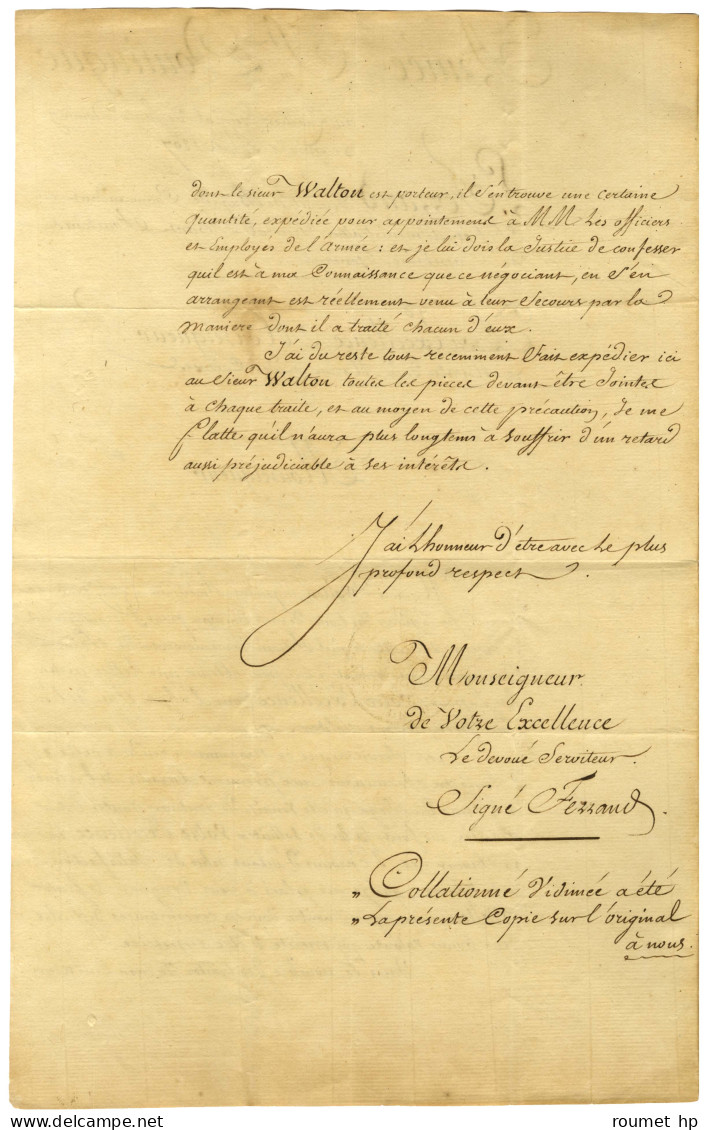 dont le sieur Walton est porteur, il s'en trouve une certaine
quantité, expédiée pour appointemens à MM Les officiers
et Employés de l'Armée : et je lui dois la Justice de confesser
quil est à ma Connaissance que ce négociant, en s'en
arrangeant est réellement venu à leur Secours par la
maniere dont il a traité chacun d'eux.
J'ai du reste tout recemment Fait expédier ici
au Sieur Walton toutes les pieces devant être Jointes
à chaque traite, et au moyen de cette précaution, Je me
flatte qu'il n'aura plus longtems à souffrir d'un retard
aussi préjudiciable à ses intérêts.
J'ai L'honneur d'être avec le plus
profond respect.
Monseigneur
de Votre Excellence
Le devoué Serviteur.
Signé Ferrand.
„ Collationné Vidimée a été
„ La présente Copie sur l'original
à nous.
roumet hp